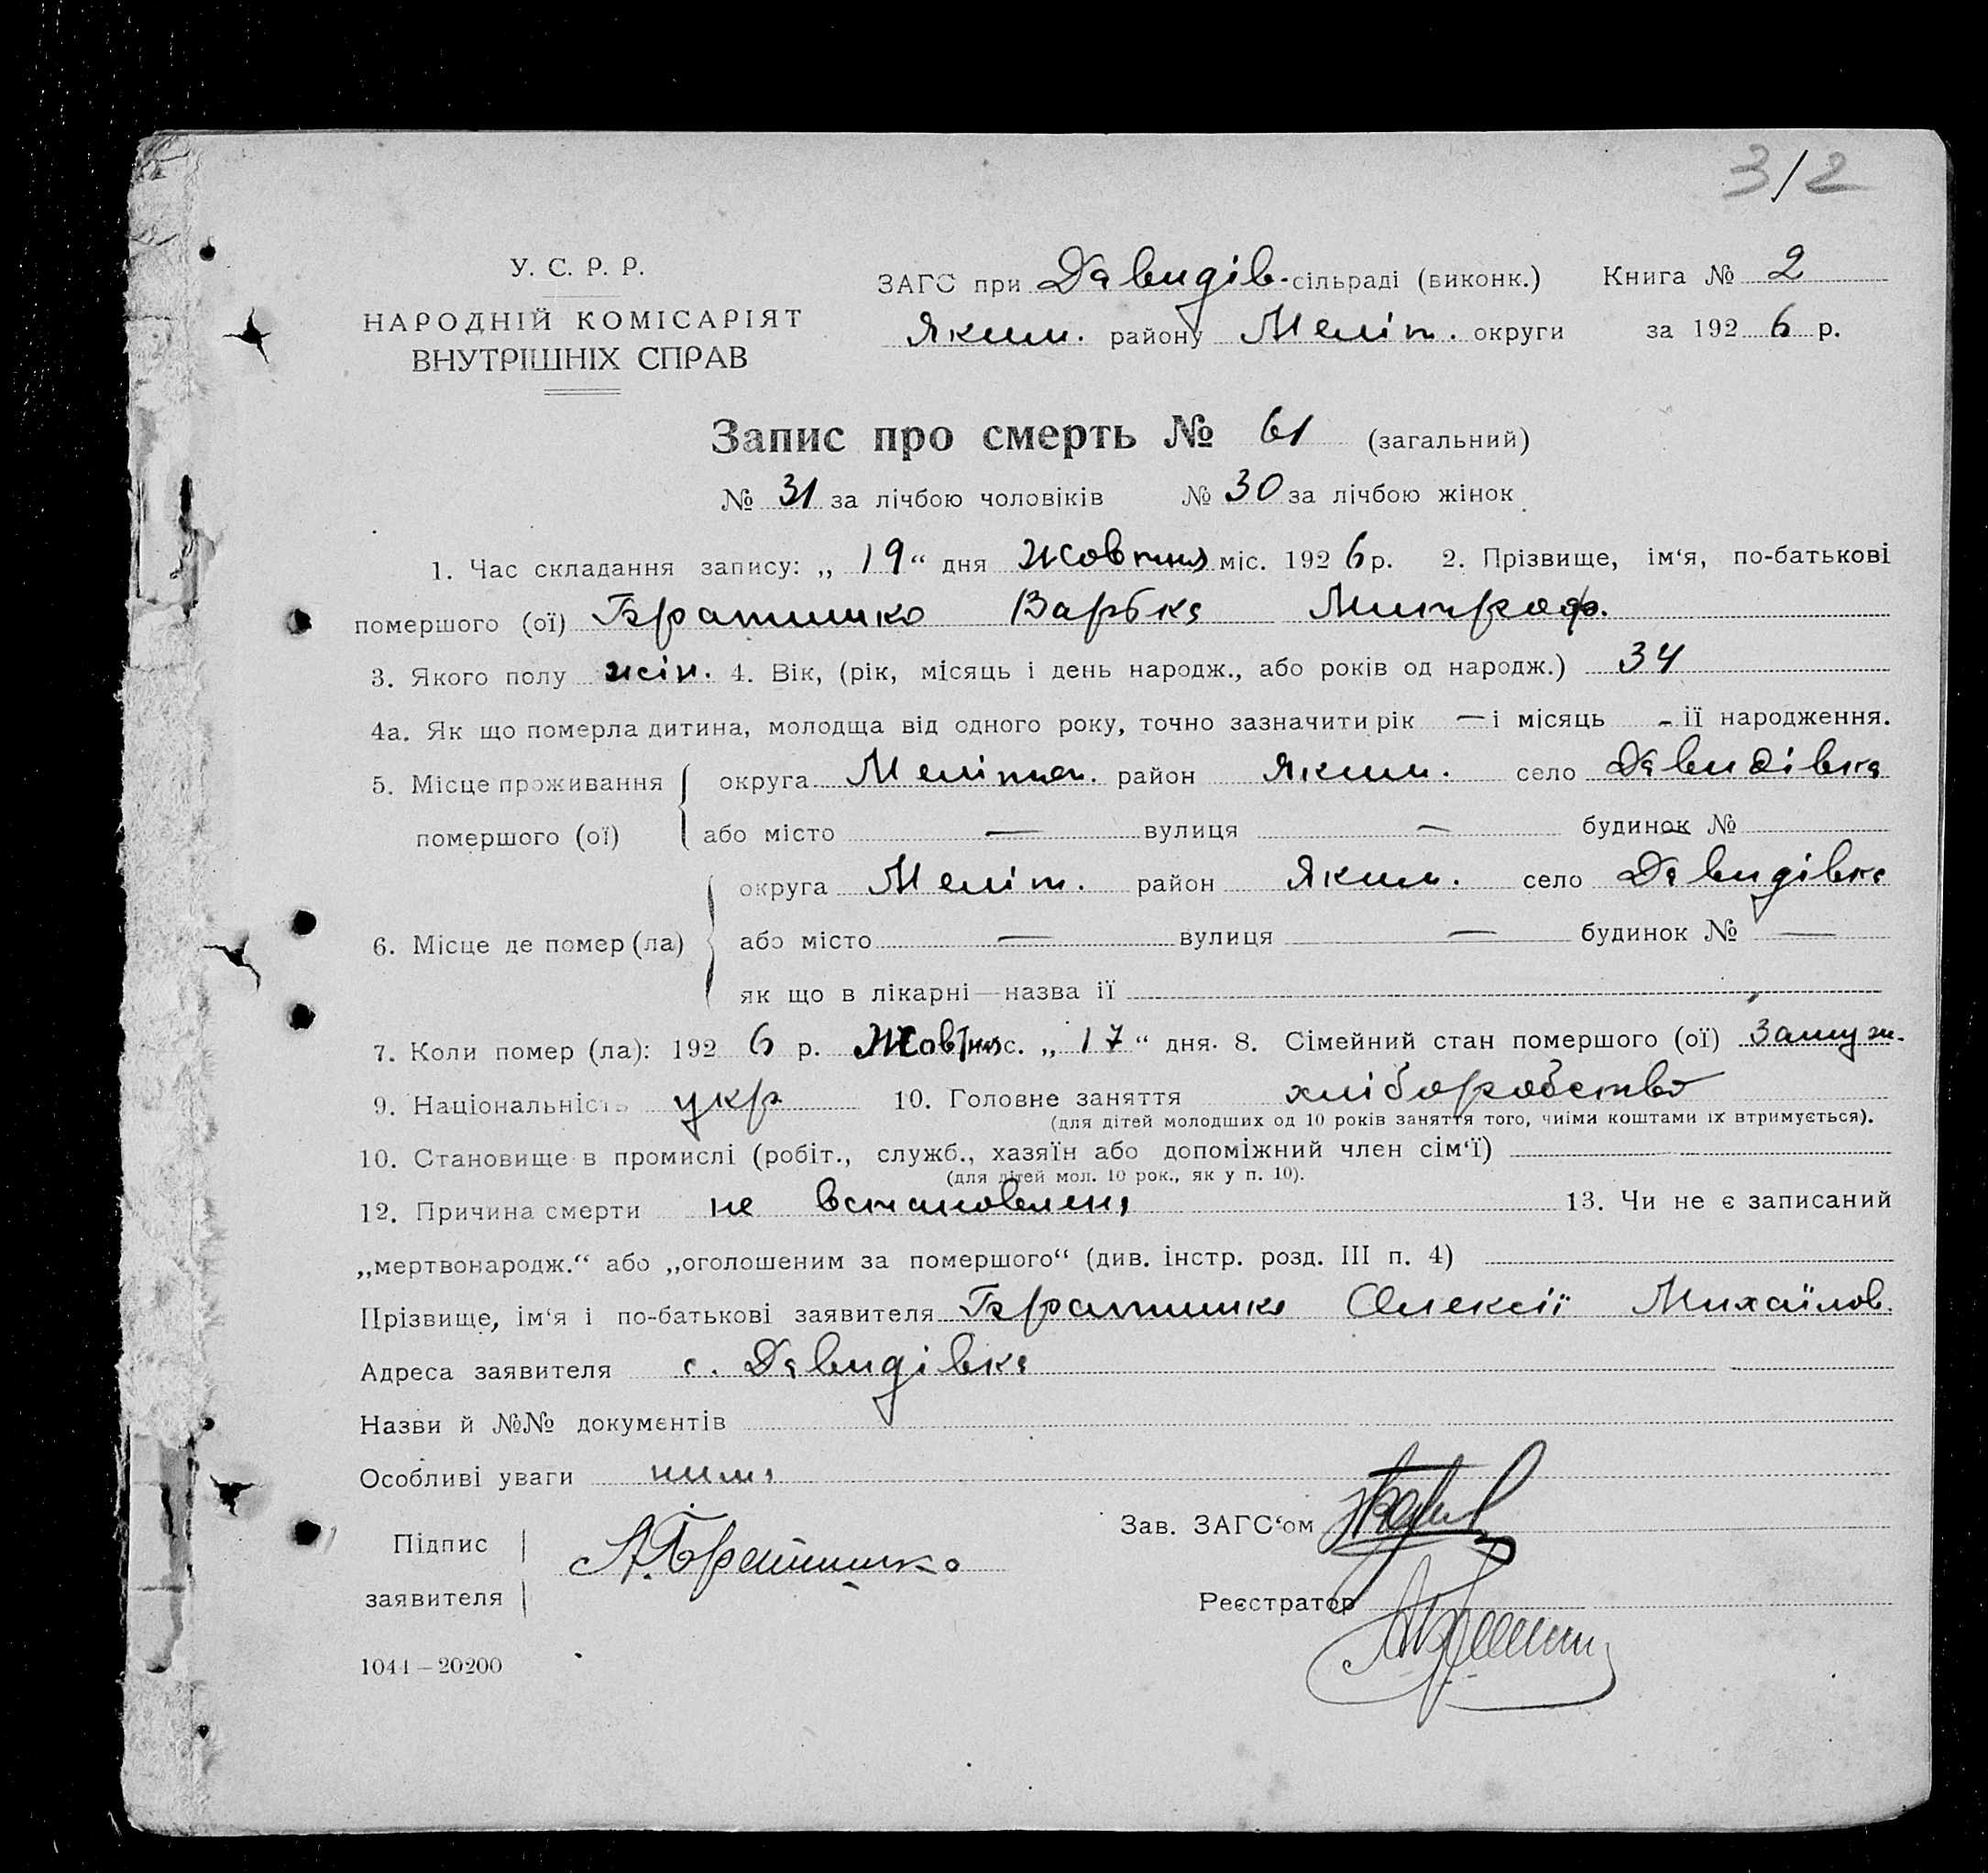 3/2
У. С. Р. Р.
НАРОДНІЙ КОМІСАРІЯТ
ВНУТРІШНІХ СПРАВ
ЗАГС при Давидів-сільраді (виконк.) Книга № 2
Яким. району Меліт. округи за 1926 р.
Запис про смерть № 61 (загальний)
№ 31 за лічбою чоловіків № 30 за лічбою жінок
1. Час складання запису: „19“ дня Жовтня міс. 1926 р. 2. Прізвище, ім‘я, по-батькові
помершого (ої) Братишко Варька Митроф.
3. Якого полу жін. 4. Вік, (рік, місяць і день народж., або років од народж.) 34
4а. Як що померла дитина, молодща від одного року, точно зазначити рік — і місяць - ії народження.
5. Місце проживання помершого (ої) округа Меліноп. район Яким. село Давидівка
або місто — вулиця — будинок №
6. Місце де помер (ла) округа Меліт. район Яким. село Давидівка
або місто — вулиця — будинок № —
як що в лікарні—назва ії
7. Коли помер (ла): 1926 р. Жовтня міс. „17“ дня. 8. Сімейний стан помершого (ої) Замуж.
9. Національність укр 10. Головне заняття хліборобство
(для дітей молодших од 10 років заняття того, чиїми коштами їх втримується).
10. Становище в промислі (робіт., служб., хазяїн або допоміжний член сім‘ї)
(для дітей мол. 10 рок., як у п. 10).
12. Причина смерти не встановлена 13. Чи не є записаний
„мертвонародж.“ або „оголошеним за помершого“ (див. інстр. розд. III п. 4)
Прізвище, ім‘я і по-батькові заявителя Братишко Олексії Михаїлов.
Адреса заявителя с. Давидівка
Назви й №№ документів
Особливі уваги нима
Підпис заявителя А. Братишко
Зав. ЗАГС‘ом
Реєстратор
1044—20200